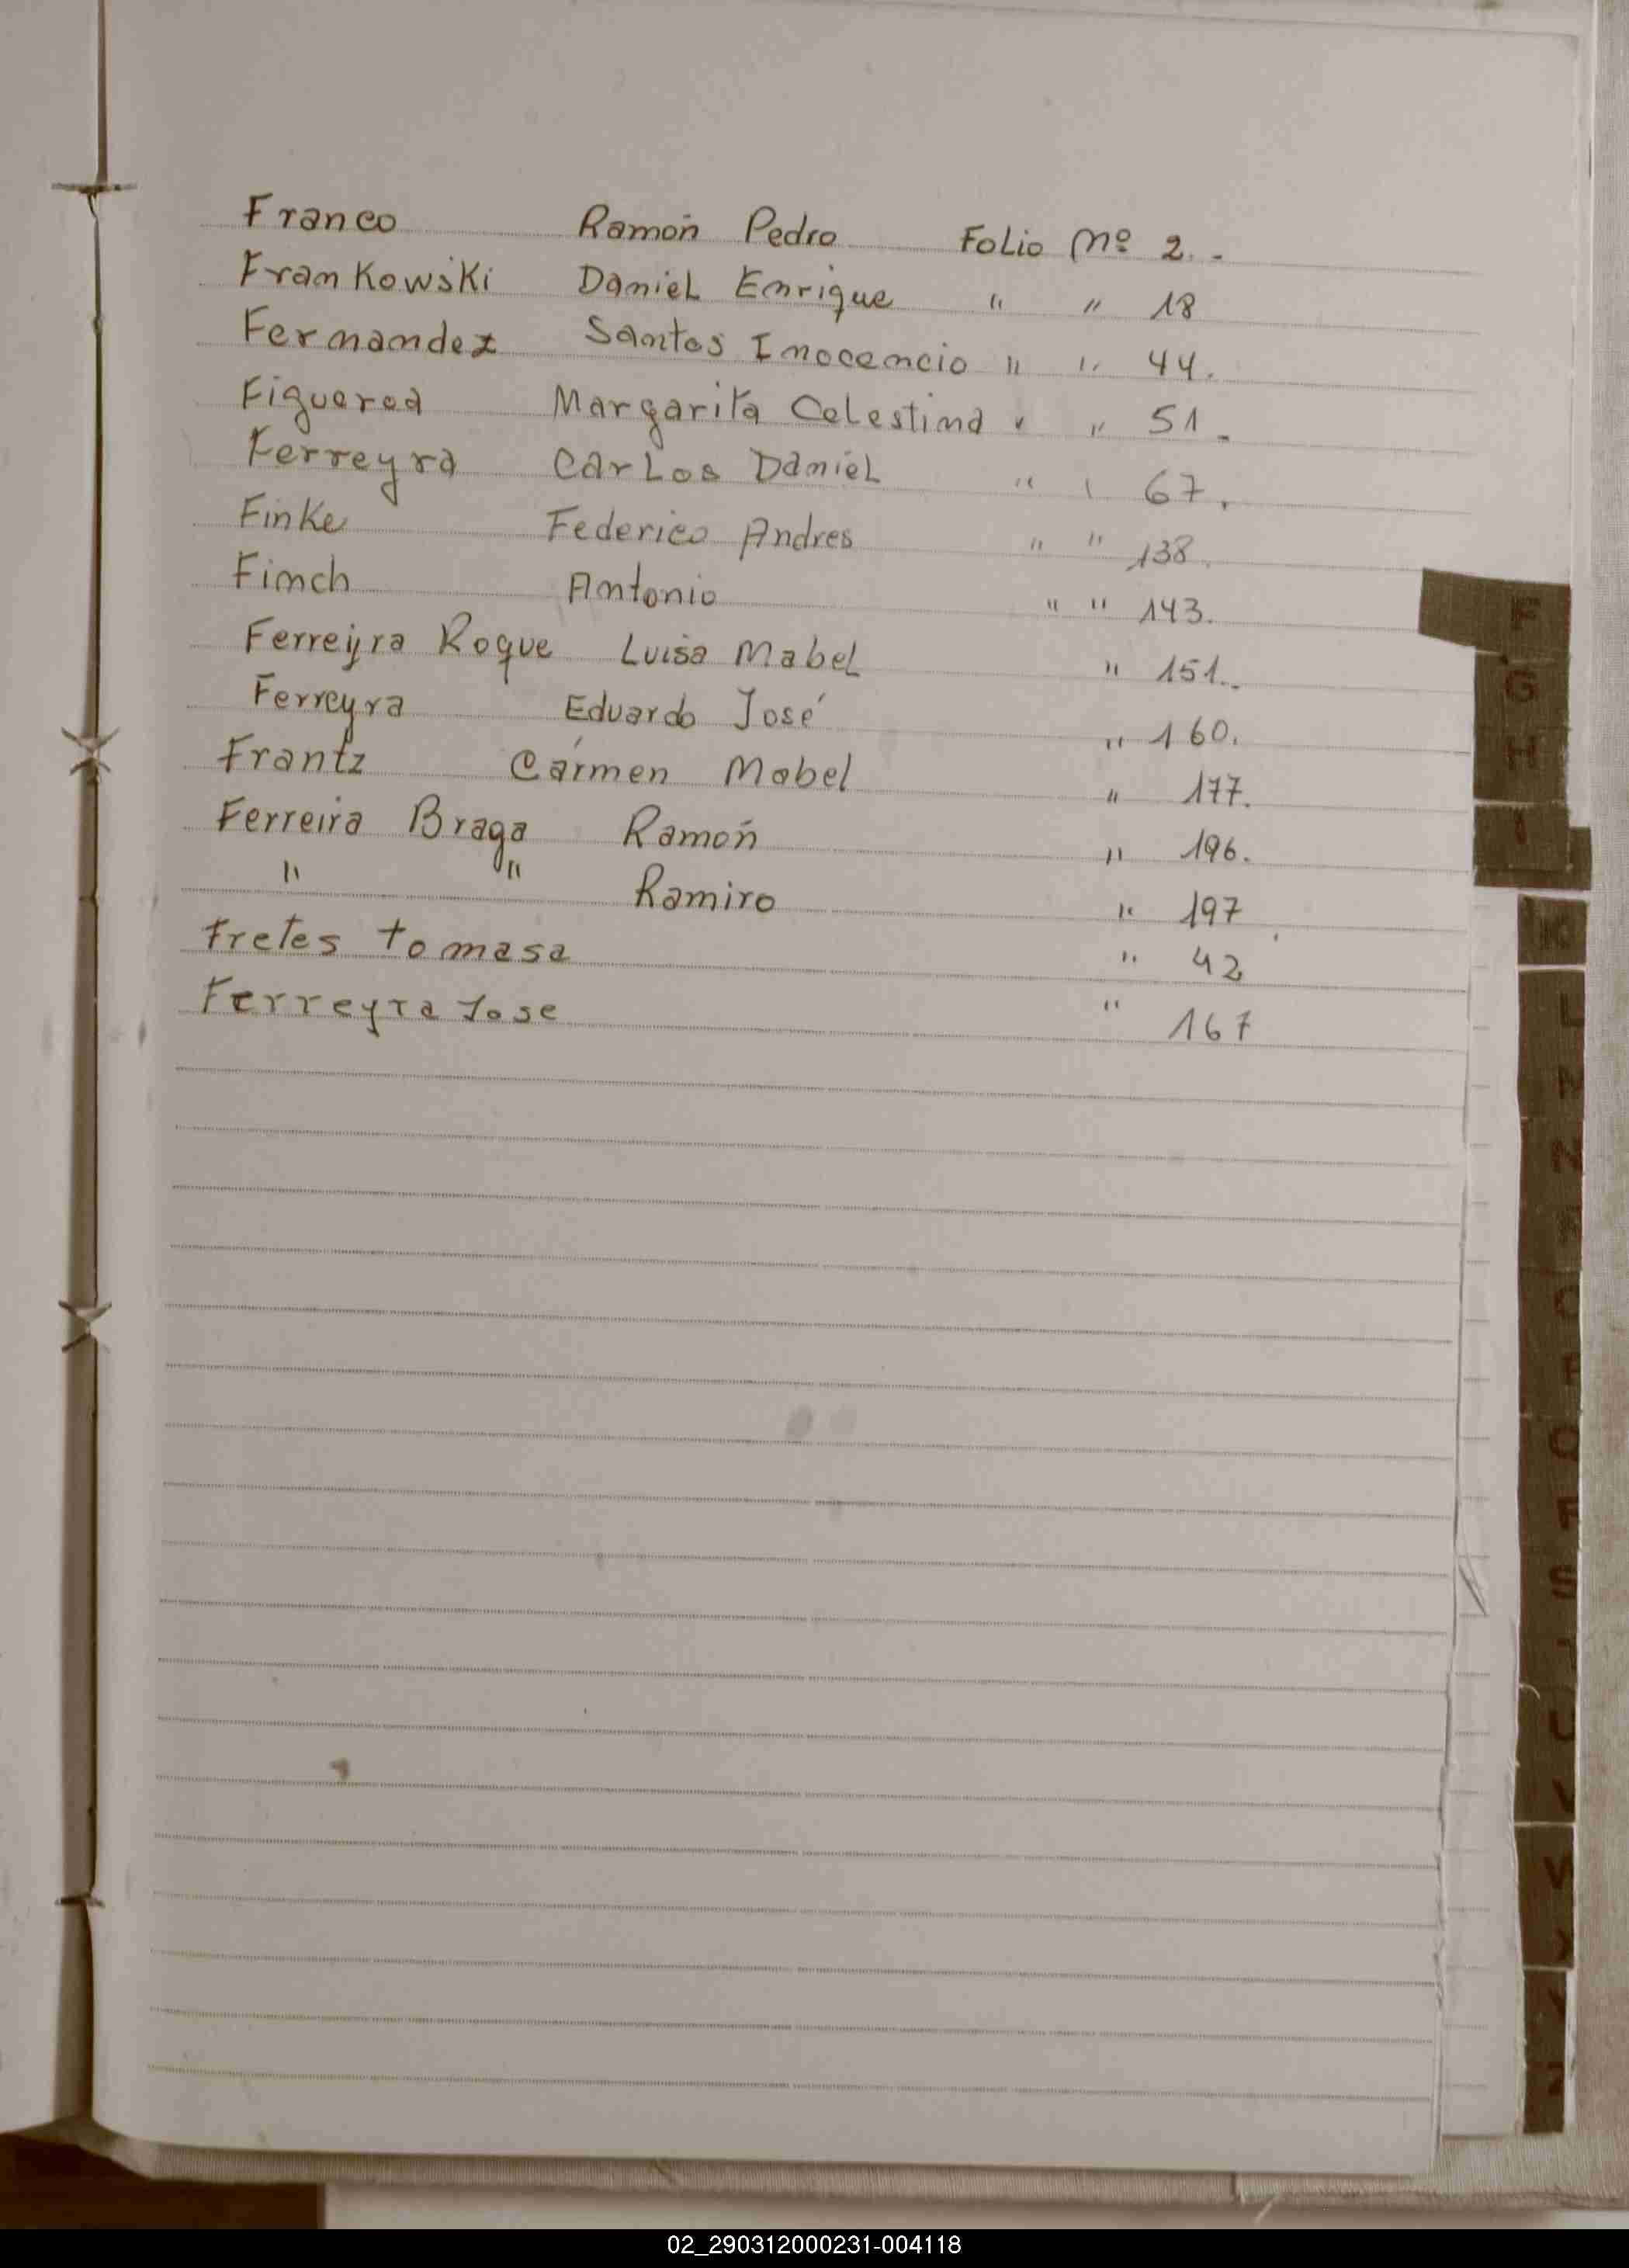 Franco Ramón Pedro Folio Nº 2.-
Frankowski Daniel Enrique " " 18
Fernandez Santos Inocencio " " 44.
Figuerod Margarita Celestina " " 51.
Ferreyra Carlos Daniel " " 67.
Finke Federico Andres " " 138.
Finch Antonio " " 143.
Ferreyra Roque Luisa Mabel " 151..
Ferreyra Eduardo José " 160.
Frantz Cármen Mabel " 177.
Ferreira Braga Ramón " 196.
" " Ramiro " 197
Fretes tomasa " 42
Ferreyra Jose " 167
F
G
H
I
K
L
N
S
U
V
02_290312000231-004118